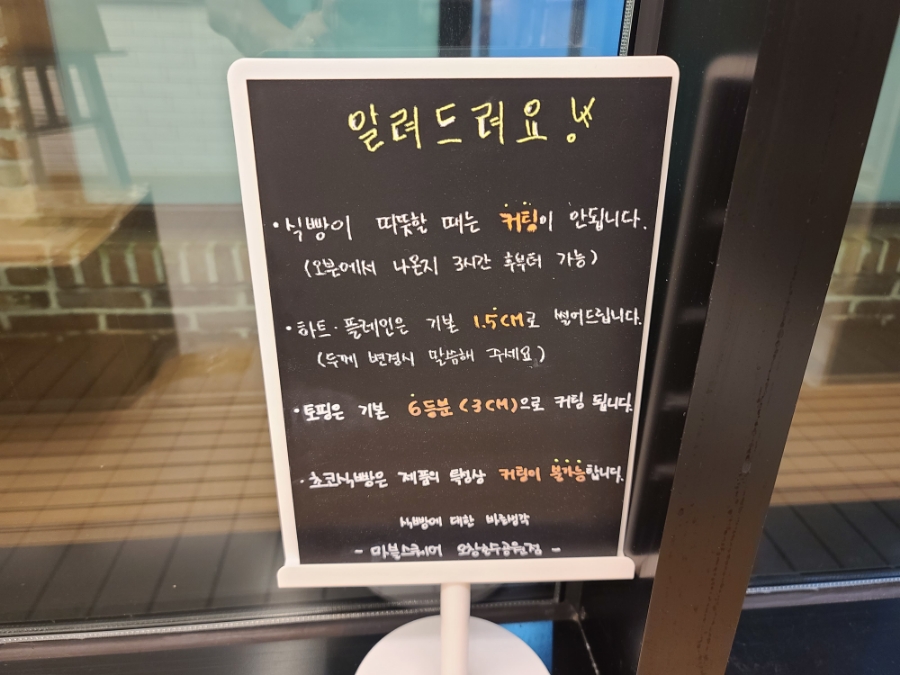 알려드려요!
· 식빵이 따뜻할 때는 커팅이 안됩니다.
(오븐에서 나온지 3시간 후부터 가능)
· 하트·플레인은 기본 1.5CM로 썰어드립니다.
(두께 변경시 말씀해 주세요.)
· 토핑은 기본 6등분(3CM)으로 커팅 됩니다.
· 초코식빵은 제품의 특성상 커팅이 불가능합니다.
식빵에 대한 바른생각
- 마블스퀘어 오창호수공원점 -